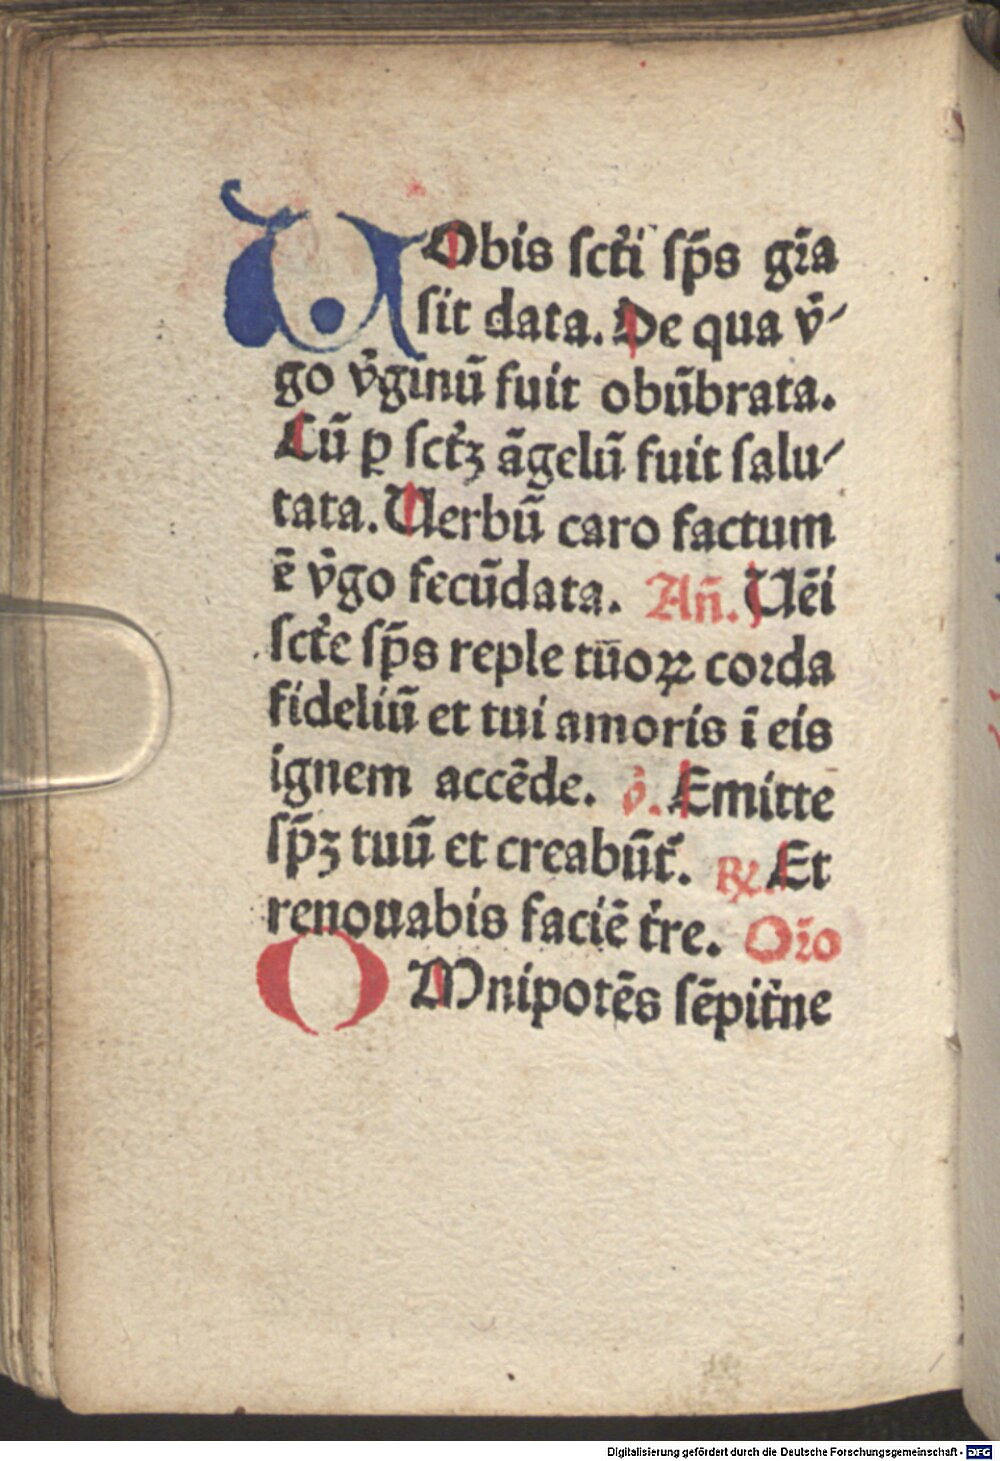 NObis ſcti ſp̄s gr̄a
ſit data. De qua v̄-
go v̄ginū fuit obūbrata.
Cū ꝑ ſctꝫ āgelū fuit ſalu-
tata. Uerbū caro factum
ē v̄go fecūdata. Añ. Uēi
ſctē ſp̄s reple tūoꝝ corda
fideliū et tui amoris ī eis
ignem accēde. v̄. Emitte
ſp̄ꝫ tuū et creabūt᷑. ℟. Et
renouabis faciē t᷑re. Or̄o
OMnipotēs ſēpit᷑ne
Digitalisierung gefördert durch die Deutsche Forschungsgemeinschaft - DFG